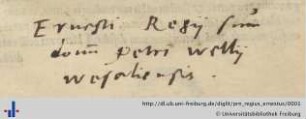 Ernesti Regij sum
domi petri welly
wesaliensis.
http://dl.ub.uni-freiburg.de/diglit/pre_regius_ernestus/0001
© Universitätsbibliothek Freiburg